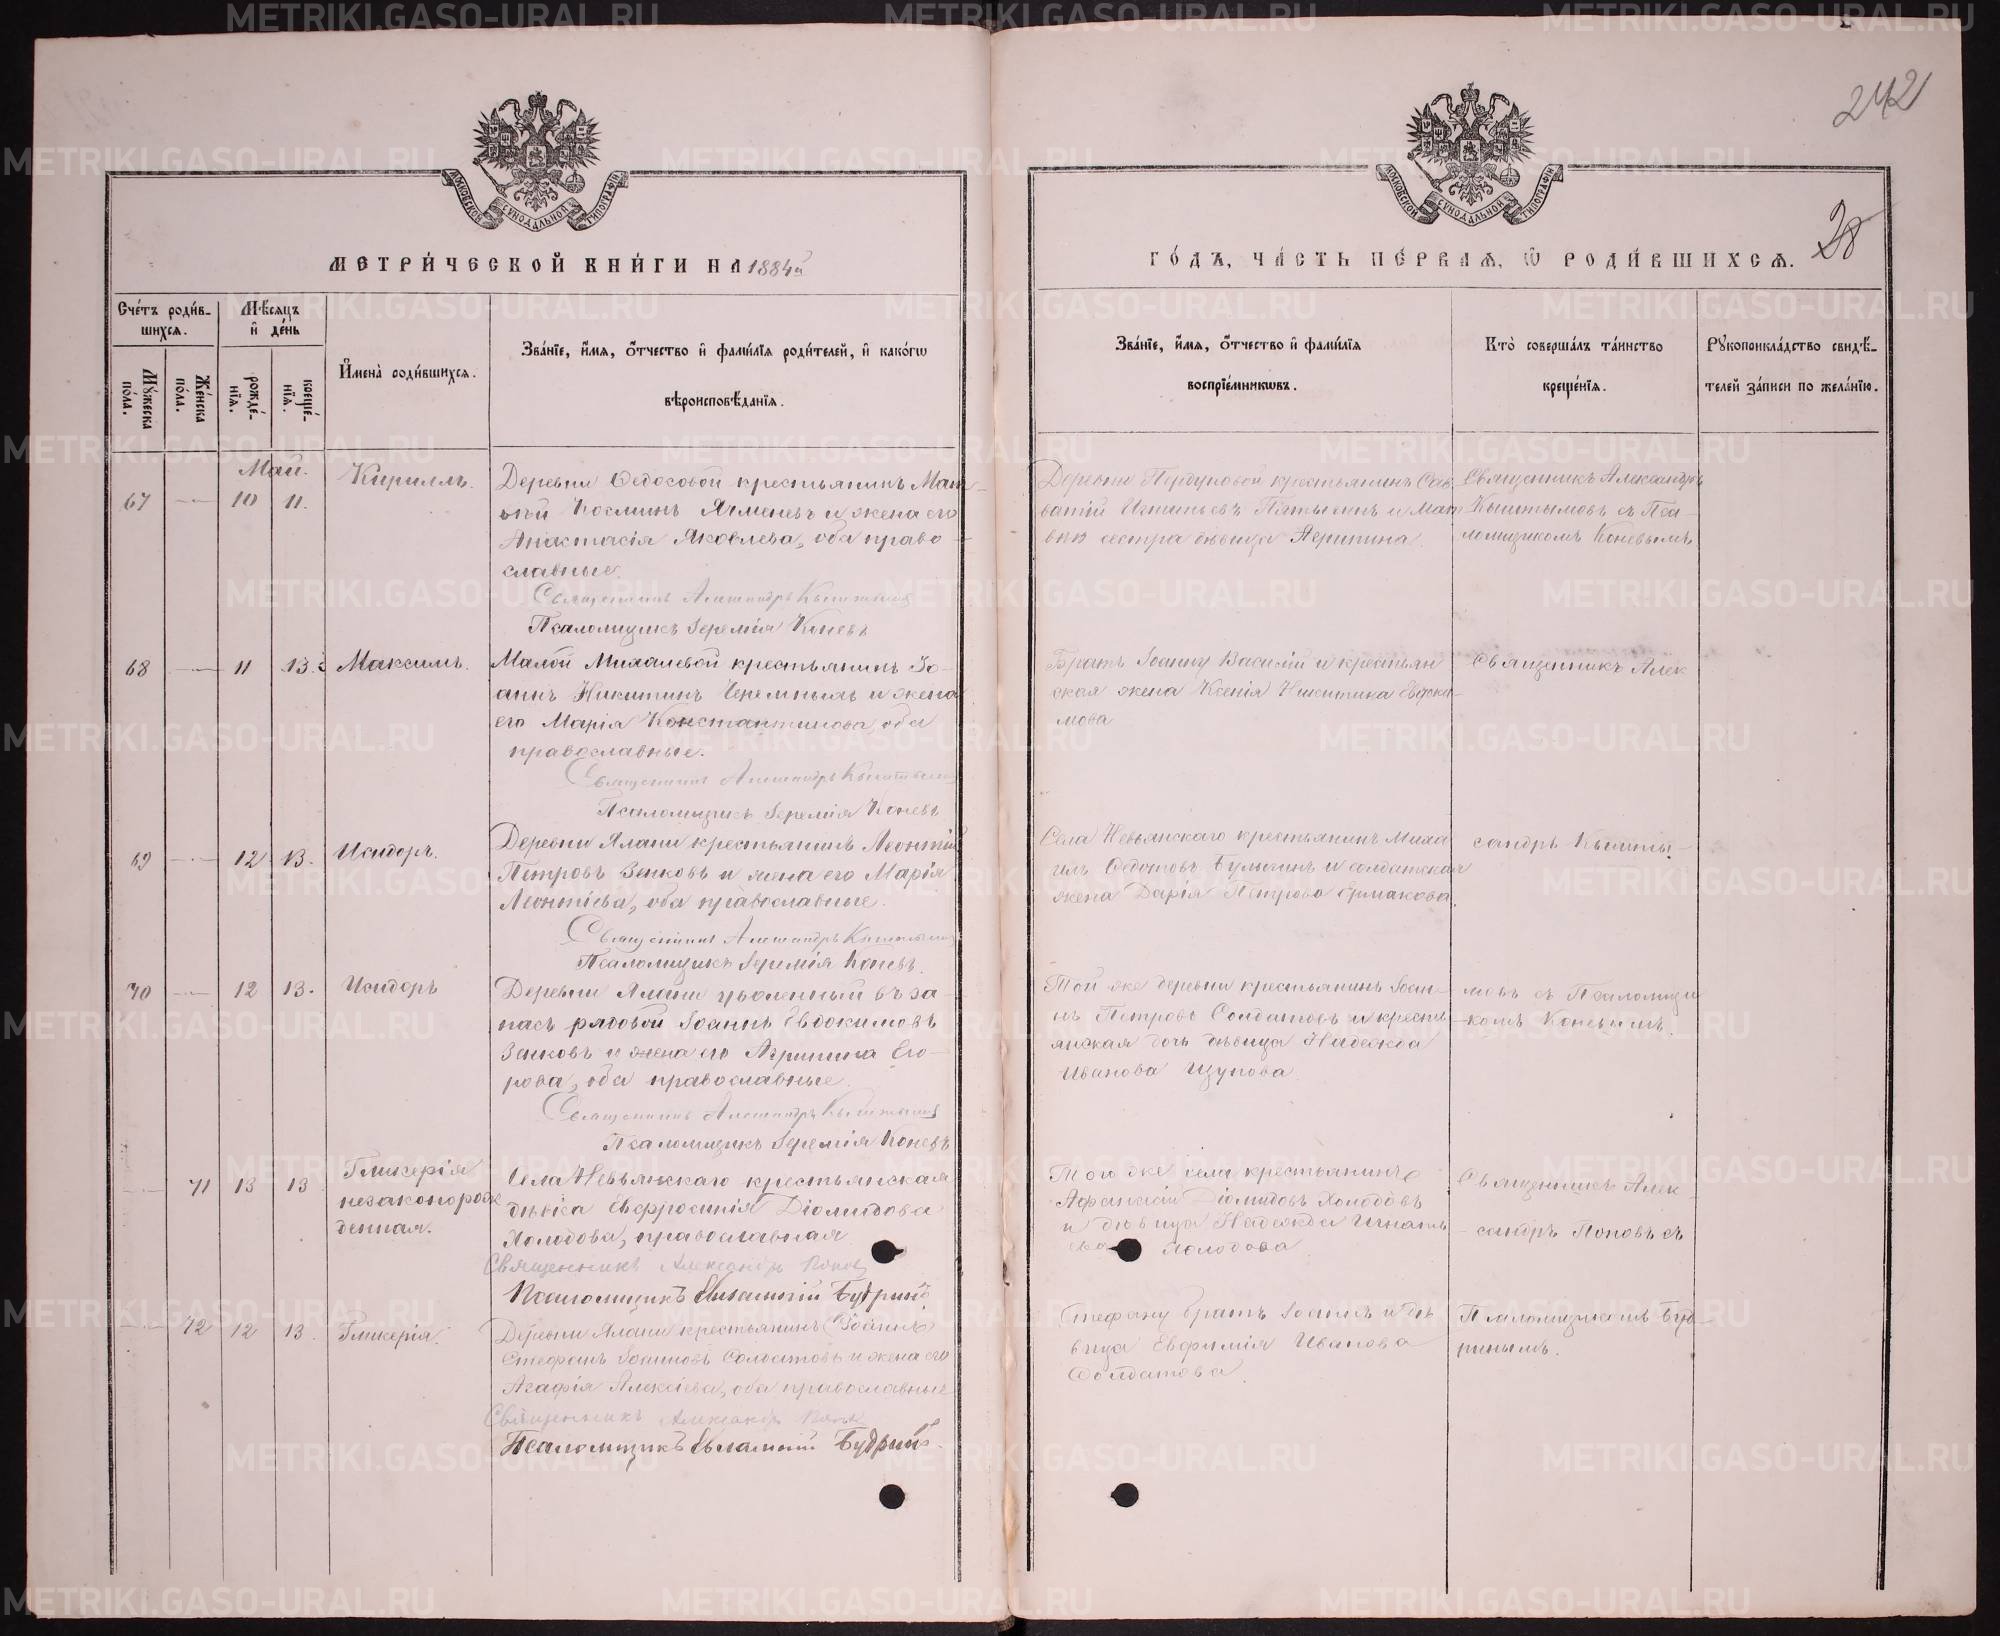 242
28
МОСКОВСКОЙ СѴНОДАЛЬНОЙ ТИПОГРАФІИ
МОСКОВСКОЙ СѴНОДАЛЬНОЙ ТИПОГРАФІИ
МЕТРИ́ЧЕСКОЙ КНИ́ГИ НА 1884й
ГО́ДЪ, ЧА́СТЬ ПЕ́РВАЯ, Ѡ РОДИ́ВШИХСЯ.
Сче́тъ роди́в-
шихся.
Мꙋжеска по́ла.
Же́нска по́ла.
Мѣ́сяцъ
и де́нь
рожде́-
нїя.
креще́-
нїя.
Имена̀ роди́вшихся.
Зва́нїе, и́мя, ѻ́тчество и фами́лїя роди́телей, и како́гѡ
вѣроисповѣ́данїя.
Зва́нїе, и́мя, ѻ́тчество и фами́лїя
воспрїе́мникѡвъ.
Кто̀ соверша́лъ та́инство
креще́нїя.
Рꙋкоприкла́дство свидѣ́-
телей за́писи по жела́нїю.
Май.
67 — 10 11.
Кириллъ.
Деревни Ѳедосовой крестьянинъ Мат-
вѣй Косминъ Ячменевъ и жена его
Анастасія Яковлева, оба право-
славные.
Священникъ Александръ Кыштымовъ
Псаломщикъ Іеремія Коневъ
Деревни крестьянинъ Сав
ватій Игнатьевъ и Мат
вѣя сестра дѣвица Агрипина.
Священникъ Александръ
Кыштымовъ съ Пса-
ломщикомъ Коневымъ
68 — 11 13.
Максимъ.
Малой Михалевой крестьянинъ Іо-
аннъ Никитинъ Черемныхъ и жена
его Марія Константинова, оба
православные.
Священникъ Александръ Кыштымовъ
Псаломщикъ Іеремія Коневъ
Братъ Іоанну Василій и крестьян
ская жена Ксенія Никитина Евдоки-
мова
Священникъ Алек
69 — 12 13.
Исидоръ.
Деревни Ялани крестьянинъ Леонтій
Петровъ Зенковъ и жена его Марія
Леонтіева, оба православные.
Священникъ Александръ Кыштымовъ
Псаломщикъ Іеремія Коневъ.
Села Невьянскаго крестьянинъ Миха
илъ Ѳедотовъ и солдатская
жена Дарія Петрова Ермакова.
сандръ Кышты-
70 — 12 13.
Исидоръ
Деревни Ялани уволенный въ за-
пасъ рядовой Іоаннъ Евдокимовъ
Зенковъ и жена его Агрипина Его-
рова, оба православные.
Священникъ Александръ Кыштымовъ
Псаломщикъ Іеремія Коневъ
Той же деревни крестьянинъ Іоан-
нъ Петровъ Солдатовъ и кресть
янская дочь дѣвица Надежда
Иванова Щупова
мовъ съ Псаломщи
комъ Коневымъ.
— 71 13 13
Гликерія
незаконорож
денная.
Села Невьянскаго крестьянская
дѣвіса Евфросинія Діомидова
Холодова, православная
Священникъ Александръ Поповъ
Псаломщикъ Евлампій Будринъ
Того же села крестьянинъ
Афанасій Діомидовъ Холодовъ
и дѣвица Надежда Игнать
Холодова
Священникъ Алек-
сандръ Поповъ съ
— 72 12 13.
Гликерія.
Деревни Ялани крестьянинъ (Іоаннъ)
Стефанъ Іоанновъ Солдатовъ и жена его
Агафія Алексіева, оба православные
Священникъ Александръ Поповъ
Псаломщикъ Евлампій Будринъ.
Стефану братъ Іоаннъ и дѣ
вица Евфимія Иванова
Солдатова.
Псаломщикомъ Буд-
ринымъ.
METRIKI.GASO-URAL.RU